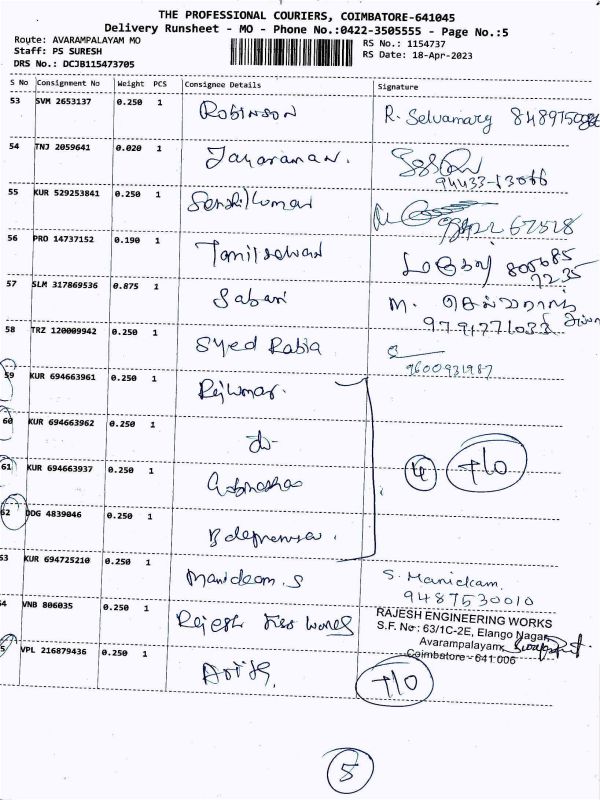 THE PROFESSIONAL COURIERS, COIMBATORE-641045
Delivery Runsheet - MO - Phone No.:0422-3505555 - Page No.:5
Route: AVARAMPALAYAM MO
RS No.: 1154737
Staff: PS SURESH
RS Date: 18-Apr-2023
DRS No.: DCJB115473705
S No Consignment No Weight PCS Consignee Details Signature
53 SVM 2653137 0.250 1 Robinson R. Selvamary
54 TNJ 2059641 0.020 1 Jayaraman.
55 KUR 529253841 0.250 1 Senthilkumar
56 PRO 14737152 0.190 1 Tamilselvan
57 SLM 317869536 0.875 1 Sabari M.
58 TRZ 120009942 0.250 1 Syed Rabia
9600931987
59 KUR 694663961 0.250 1 Rajkumar.
60 KUR 694663962 0.250 1 do
4 T/O
61 KUR 694663937 0.250 1
62 DDG 4839046 0.250 1
63 KUR 694725210 0.250 1 Manickam. S S. Manickam.
9487530010
64 VNB 806035 0.250 1 Rajesh
RAJESH ENGINEERING WORKS
S.F. No : 63/1C-2E, Elango Nagar,
Avarampalayam,
Coimbatore - 641 006
65 VPL 216879436 0.250 1 T/O
5